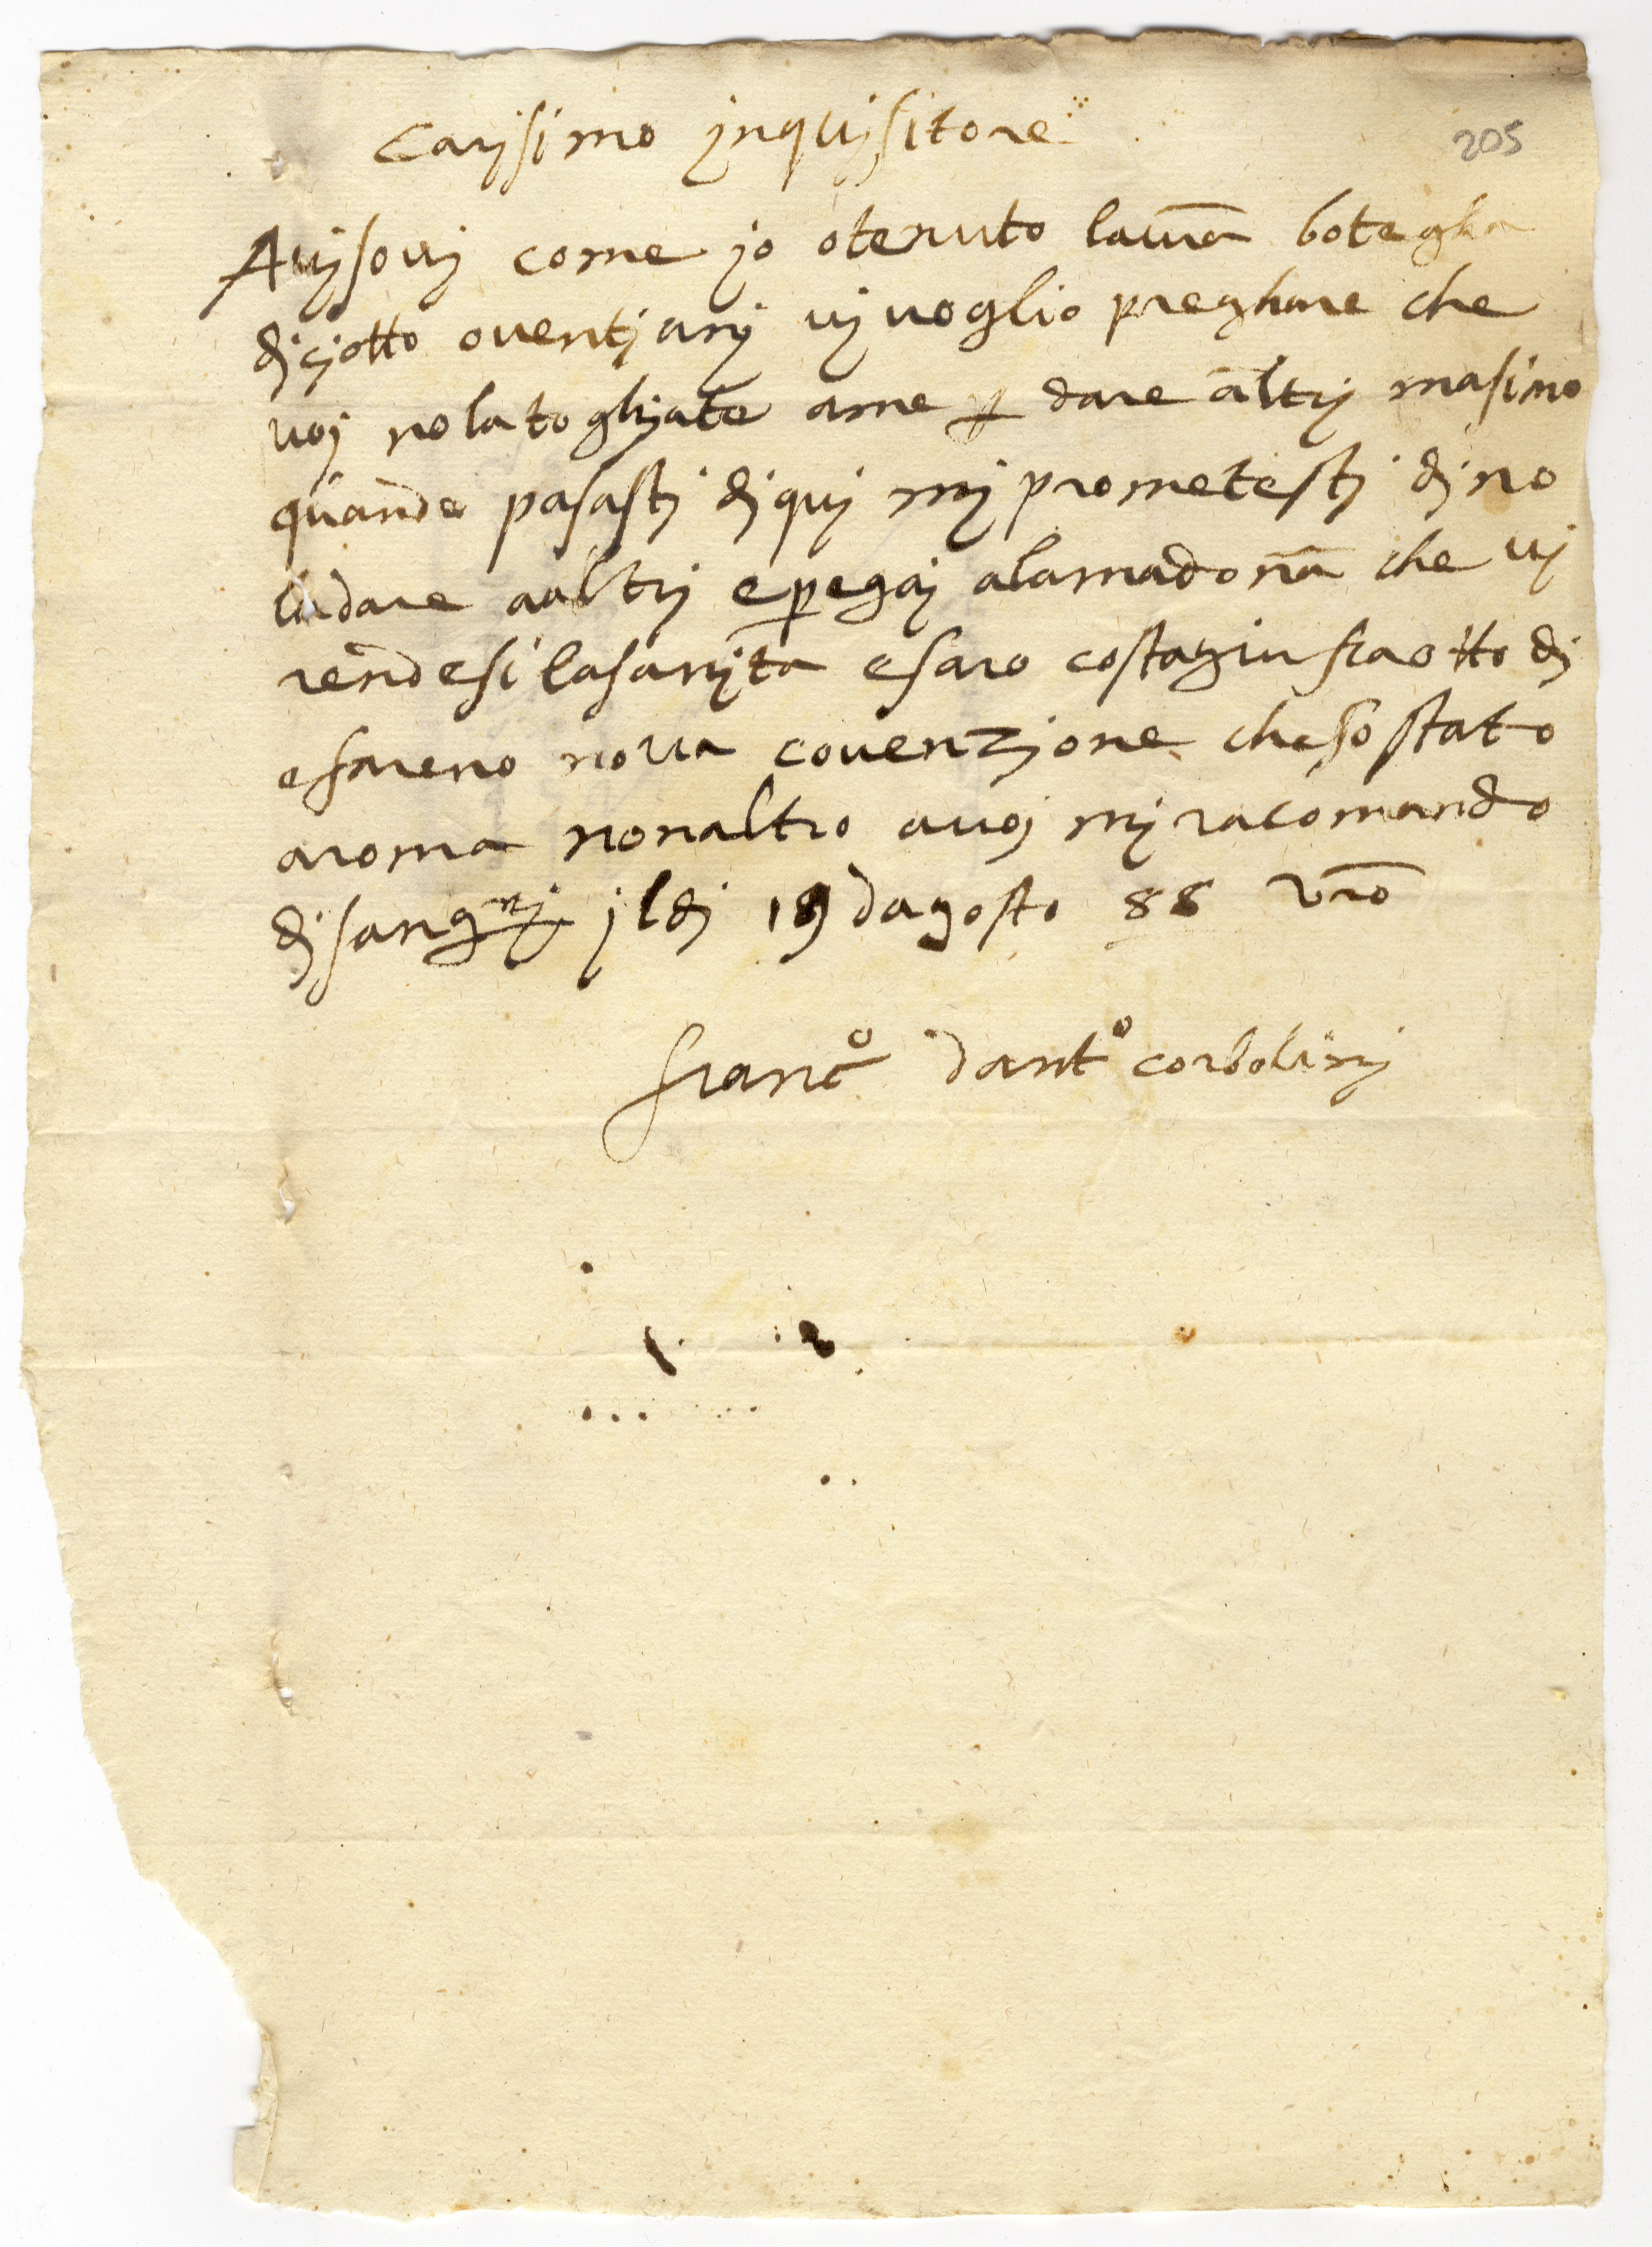 carjsimo jnqujsitore
205
Aujsouj come jo otenuto la vr̄a botegha
djcjotto ouentj anj uj uoglio preghare che
uoj nola togljate ame ꝑ dare altrj masimo
quando pasastj dj quj mj prometestj dj no
la dare aaltrj e pregaj alamadon̄a che uj
rendesi lasanjta e saro costagiu fra otto dj
e fareno noua couenzjone che so stato
aroma non altro a uoj mj racomando
dj sangnj jl dj 19 dagosto 88 vr̄o
francº dantº corbolinj